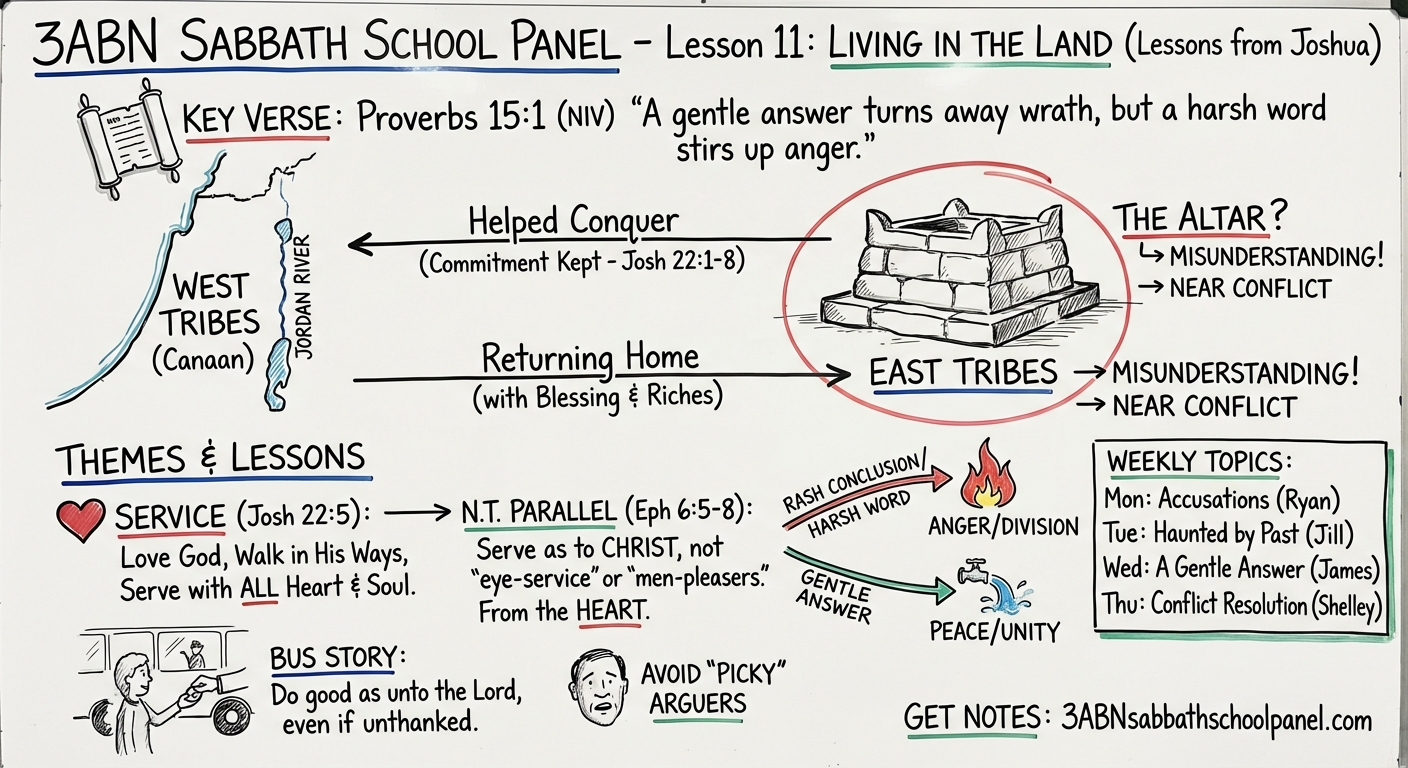 3ABN SABBATH SCHOOL PANEL – Lesson 11: LIVING IN THE LAND (Lessons from Joshua)
KEY VERSE: Proverbs 15:1 (NIV) “A gentle answer turns away wrath, but a harsh word
stirs up anger.”
WEST
TRIBES
(Canaan)
JORDAN RIVER
Helped Conquer
(Commitment Kept – Josh 22:1-8)
Returning Home
(with Blessing & Riches)
THE ALTAR?
↳ MISUNDERSTANDING!
→ NEAR CONFLICT
EAST TRIBES → MISUNDERSTANDING!
→ NEAR CONFLICT
THEMES & LESSONS
SERVICE (Josh 22:5):
Love God, Walk in His Ways,
Serve with ALL Heart & Soul.
N.T. PARALLEL (Eph 6:5-8):
Serve as to CHRIST, not
“eye-service” or “men-pleasers.”
From the HEART.
RASH CONCLUSION/
HARSH WORD
ANGER/DIVISION
GENTLE
ANSWER
PEACE/UNITY
WEEKLY TOPICS:
Mon: Accusations (Ryan)
Tue: Haunted by Past (Jill)
Wed: A Gentle Answer (James)
Thu: Conflict Resolution (Shelley)
BUS STORY:
Do good as unto the Lord,
even if unthanked.
AVOID “PICKY”
ARGUERS
GET NOTES: 3ABNsabbathschoolpanel.com